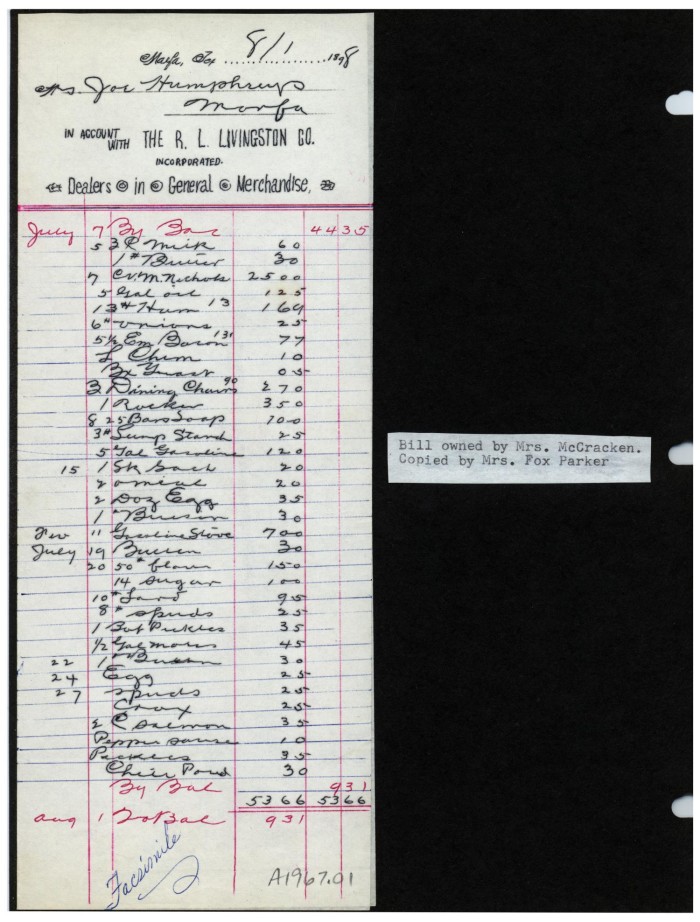 Marfa, Tex. 8/1 1898
Mrs Joe Humphreys
Marfa
IN ACCOUNT WITH THE R. L. LIVINGSTON CO.
INCORPORATED.
Dealers in General Merchandise,
July 7 By Bal 4435
5 3 Milk 60
1# Butter 30
7 C.V.M. Nichols 2500
5 Gal oil 125
13# Ham 13 169
6# onions 25
5½ Em Bacon 77
10
Bx 05
3 Dining Chairs 90 270
1 Rocker 350
8 25 Bars Soap 100
3# Starch 25
5 Gal Gasoline 120
15 1 Sk 20
2 20
2 Doz Egg 35
1# 30
11 Gasoline Stove 700
July 19 Butter 30
20 50# flour 150
14 sugar 100
10# Lard 95
8# spuds 25
1 Bot Pickles 35
½ Gal 45
22 1# Butter 30
24 Egg 25
27 spuds 25
25
2 C salmon 35
Pepper sauce 10
Pickles 35
Powd 30
By Bal 931
5366 5366
Aug 1 To Bal 931
Facsimile
A1967.01
Bill owned by Mrs. McCracken.
Copied by Mrs. Fox Parker